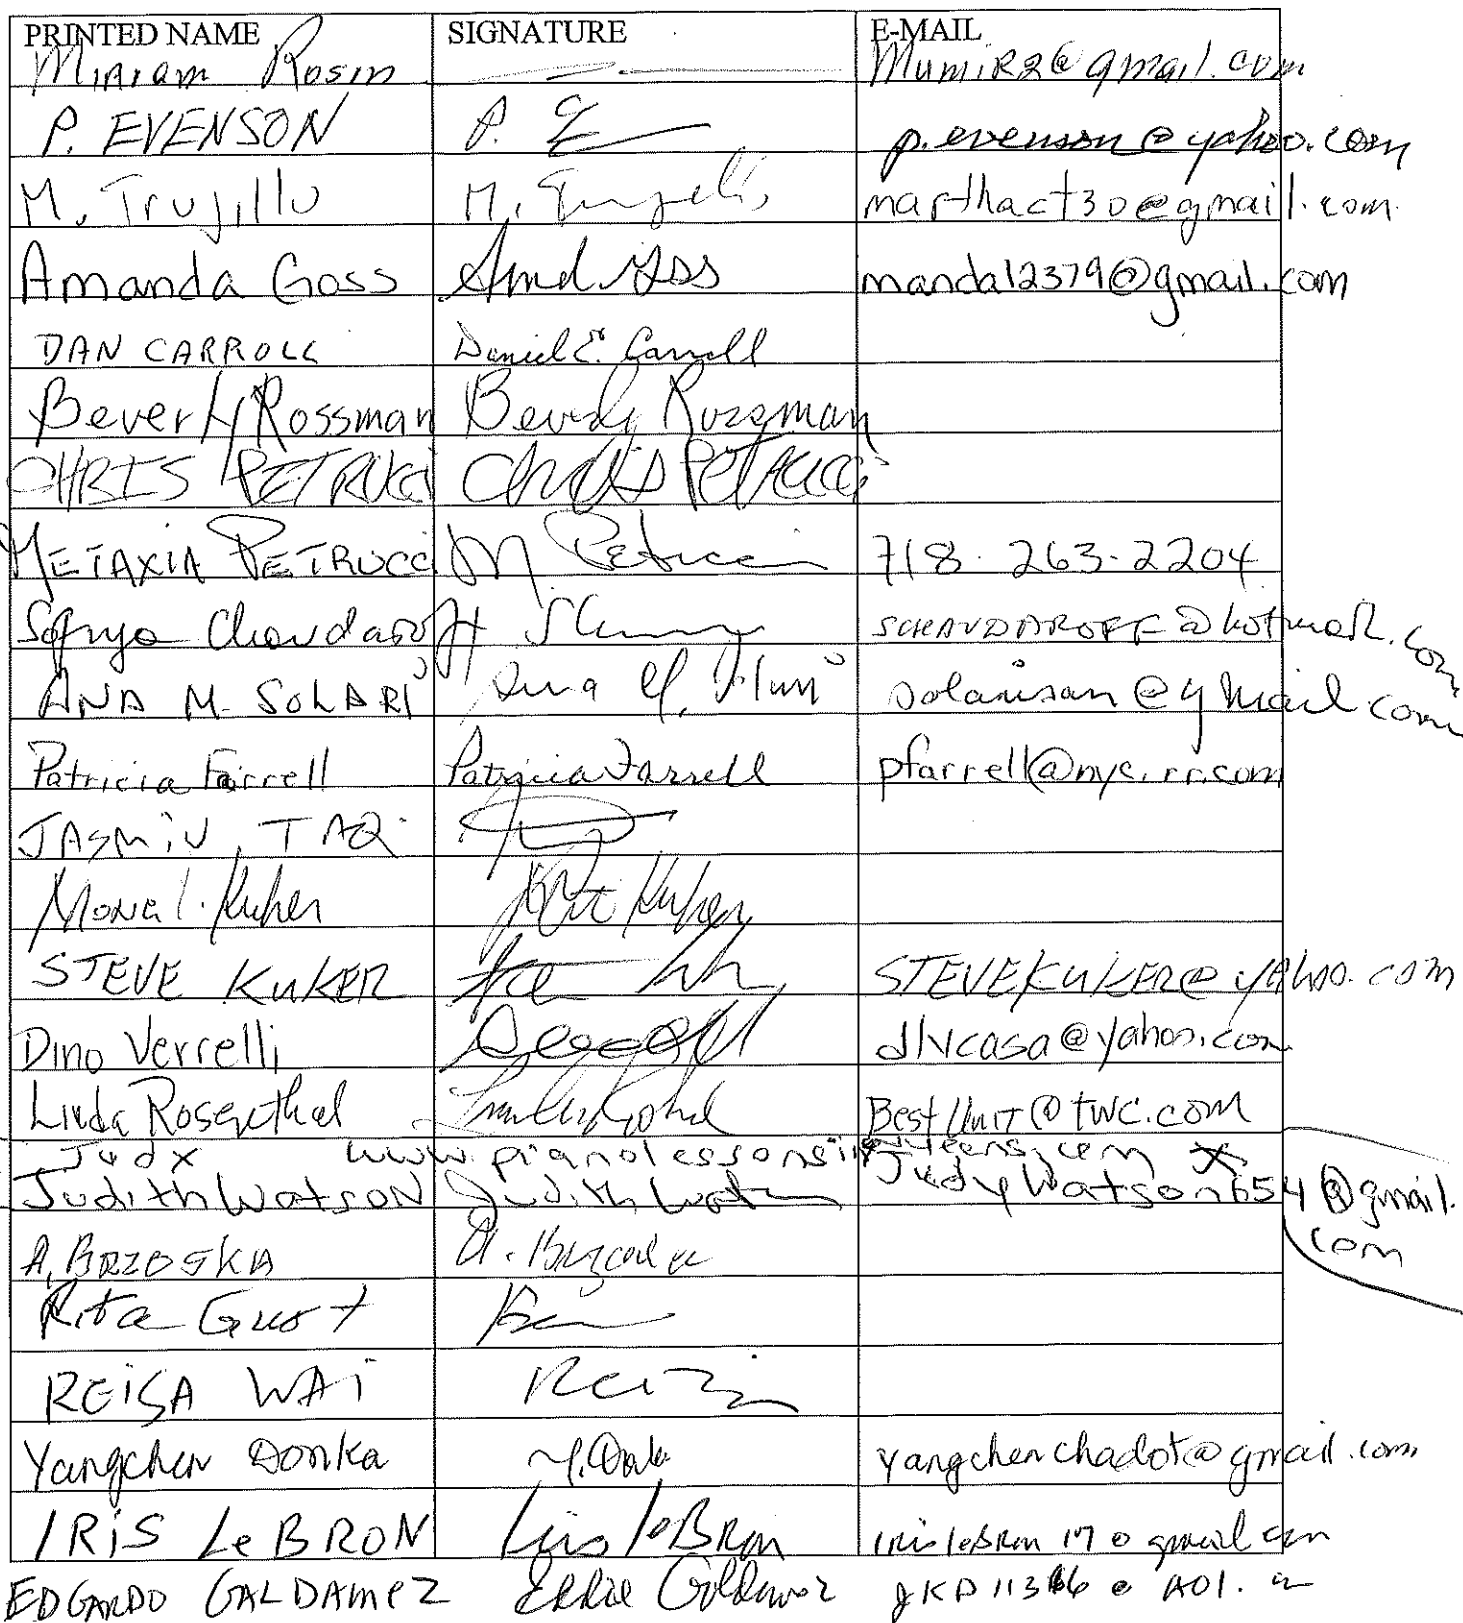 PRINTED NAME SIGNATURE E-MAIL
Miriam Rosin Mumir2@gmail.com
P. EVENSON P. E p.evenson@yahoo.com
M. Trujillo M. Trujillo marthact30@gmail.com
Amanda Goss Amd Goss manda12379@gmail.com
DAN CARROLL Daniel E. Carroll
Beverly Rossman Beverly Rossman
CHRIS PETRUCCI CHRIS PETRUCCI
METAXIA PETRUCCI M Petrucci 718-263-2204
Sofrya Chavdaroff SCHAVDAROFF@hotmail.com
ANA M. SOLARI Ana M. solarisan@gmail.com
Patricia Farrell Patricia Farrell pfarrell@nyc.rr.com
JASMIN TAQ
Mona L. Kuker Kuker
STEVE KUKER STEVEKUKER@yahoo.com
Dino Verrelli dlvcasa@yahoo.com
Linda Rosenthal BestUnit@twc.com
Judy www.pianolessonsinqueens.com
Judith Watson Judith Watson JudyWatson654@gmail.com
A. BRZOSKA A. Brzoska
Rita Gust
REISA WAI
Yangchen Donka Y. Donka yangchenchadot@gmail.com
IRIS LeBRON Iris leBron irislebron17@gmail.com
EDGARDO GALDAMEZ Eddie Galdamez